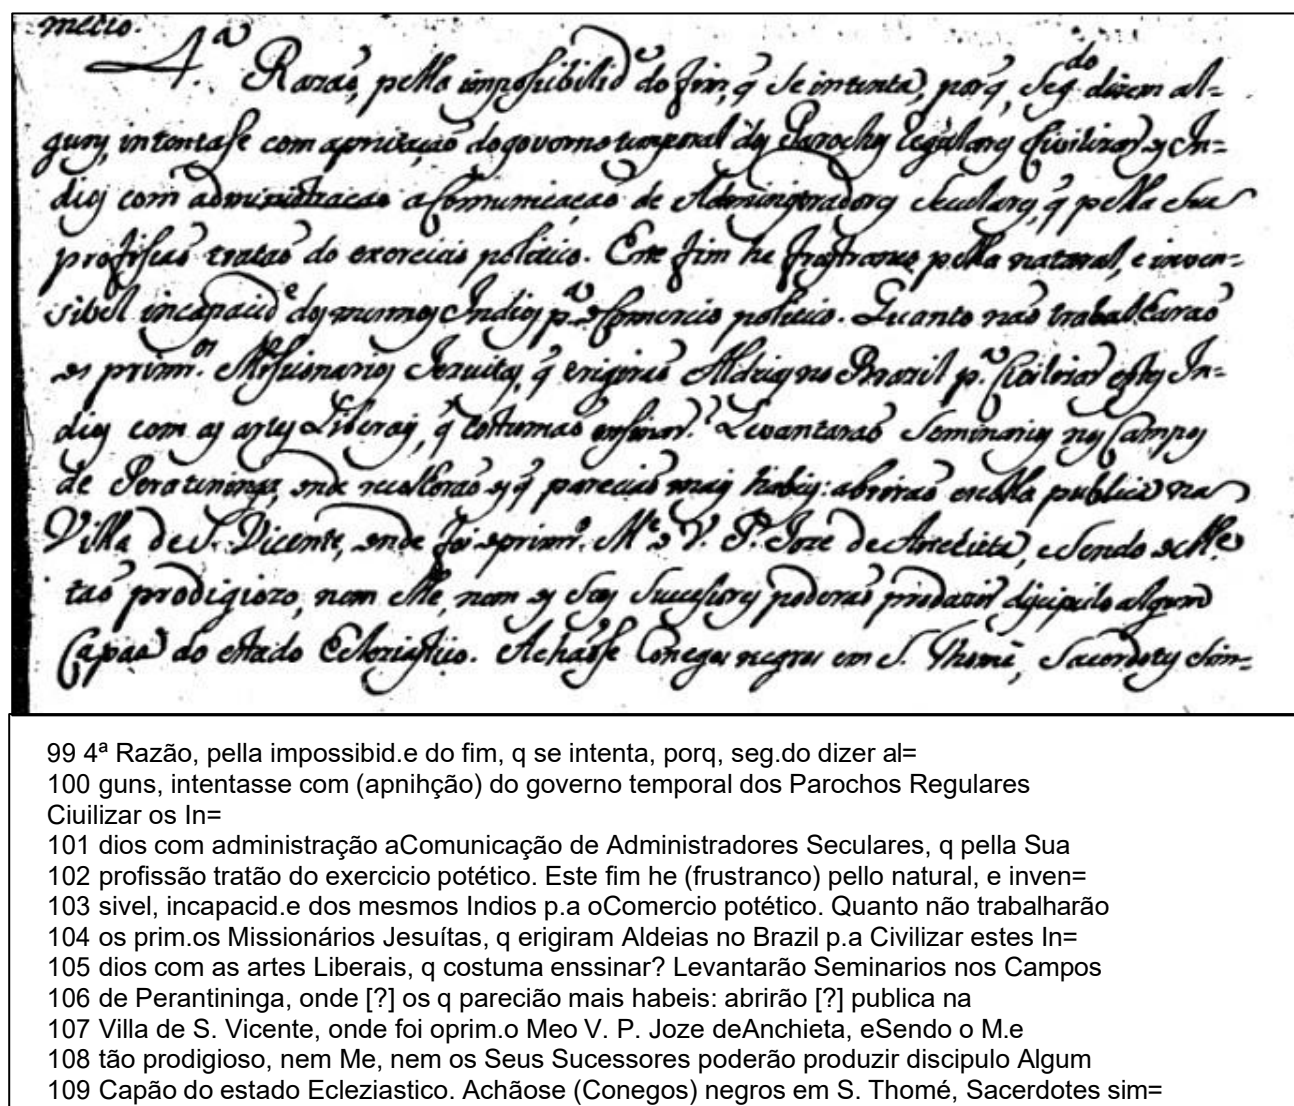 mettio.
4.ª Razaõ, pella impossibilid.e do fim, q̃ se intenta, porq̃, seg.do dizem al=
guns, intentase com aprivaçaõ dogoverno temporal dos Parochos Regulares Civilizar os In=
dios com administracao a Comunicaçaõ de Administradores Seculares, q̃ pella Sua
profissaõ trataõ do exercicio politico. Este fim he frustraneo pella natural, e inven=
sibel incapacid.e dos mesmos Indios p.a o Comercio politico. Quanto naõ trabalharaõ
os prim.os Missionarios Jezuitas, q̃ erigiraõ Aldeias no Brazil p.a Civilizar estes In=
dios com as artes Liberais, q̃ costumaõ ensinar? Levantaraõ Seminarios nos Campos
de Peratininga, onde recolheraõ os q̃ pareciaõ mais habeis: abriraõ escolla publica na
Villa de S. Vicente, onde foi oprimr.o M.e o V. P. Joze de Anchieta, eSendo o M.e
taõ prodigiozo, nem elle, nem os Seus Sucessores poderaõ produzir discipulo algum
Capas do estado Ecleziastico. Achaõse Conegos negros em S. Thomé, Sacerdotes Sim=
99 4ª Razão, pella impossibid.e do fim, q se intenta, porq, seg.do dizer al=
100 guns, intentasse com (apnihção) do governo temporal dos Parochos Regulares
Ciuilizar os In=
101 dios com administração aComunicação de Administradores Seculares, q pella Sua
102 profissão tratão do exercicio potético. Este fim he (frustranco) pello natural, e inven=
103 sivel, incapacid.e dos mesmos Indios p.a oComercio potético. Quanto não trabalharão
104 os prim.os Missionários Jesuítas, q erigiram Aldeias no Brazil p.a Civilizar estes In=
105 dios com as artes Liberais, q costuma enssinar? Levantarão Seminarios nos Campos
106 de Perantininga, onde [?] os q parecião mais habeis: abrirão [?] publica na
107 Villa de S. Vicente, onde foi oprim.o Meo V. P. Joze deAnchieta, eSendo o M.e
108 tão prodigioso, nem Me, nem os Seus Sucessores poderão produzir discipulo Algum
109 Capão do estado Ecleziastico. Achãose (Conegos) negros em S. Thomé, Sacerdotes sim=